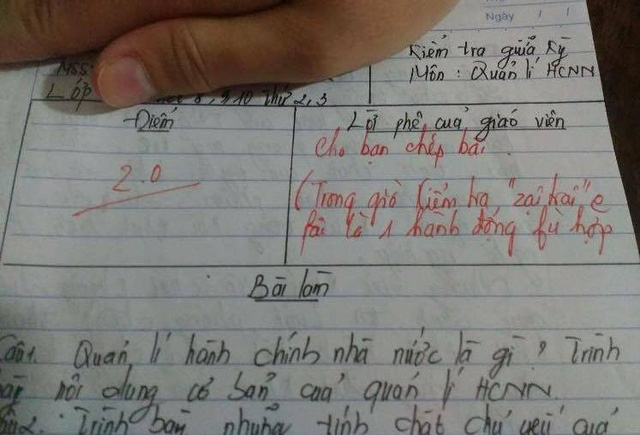 Ngày / /
Kiểm tra giữa kỳ
Môn : Quản lí HCNN
MSS
LỚP 8, 9, 10 Thứ 2, 3
Điểm
Lời phê của giáo viên
2.0
Cho bạn chép bài.
(Trong giờ kiểm tra, "zai trai" e
fải là 1 hành động fù hợp
Bài làm
Câu 1. Quản lí hành chính nhà nước là gì ? Trình
nội dung cơ bản của quản lí HCNN.
Trình bày những tính chất chủ yếu của